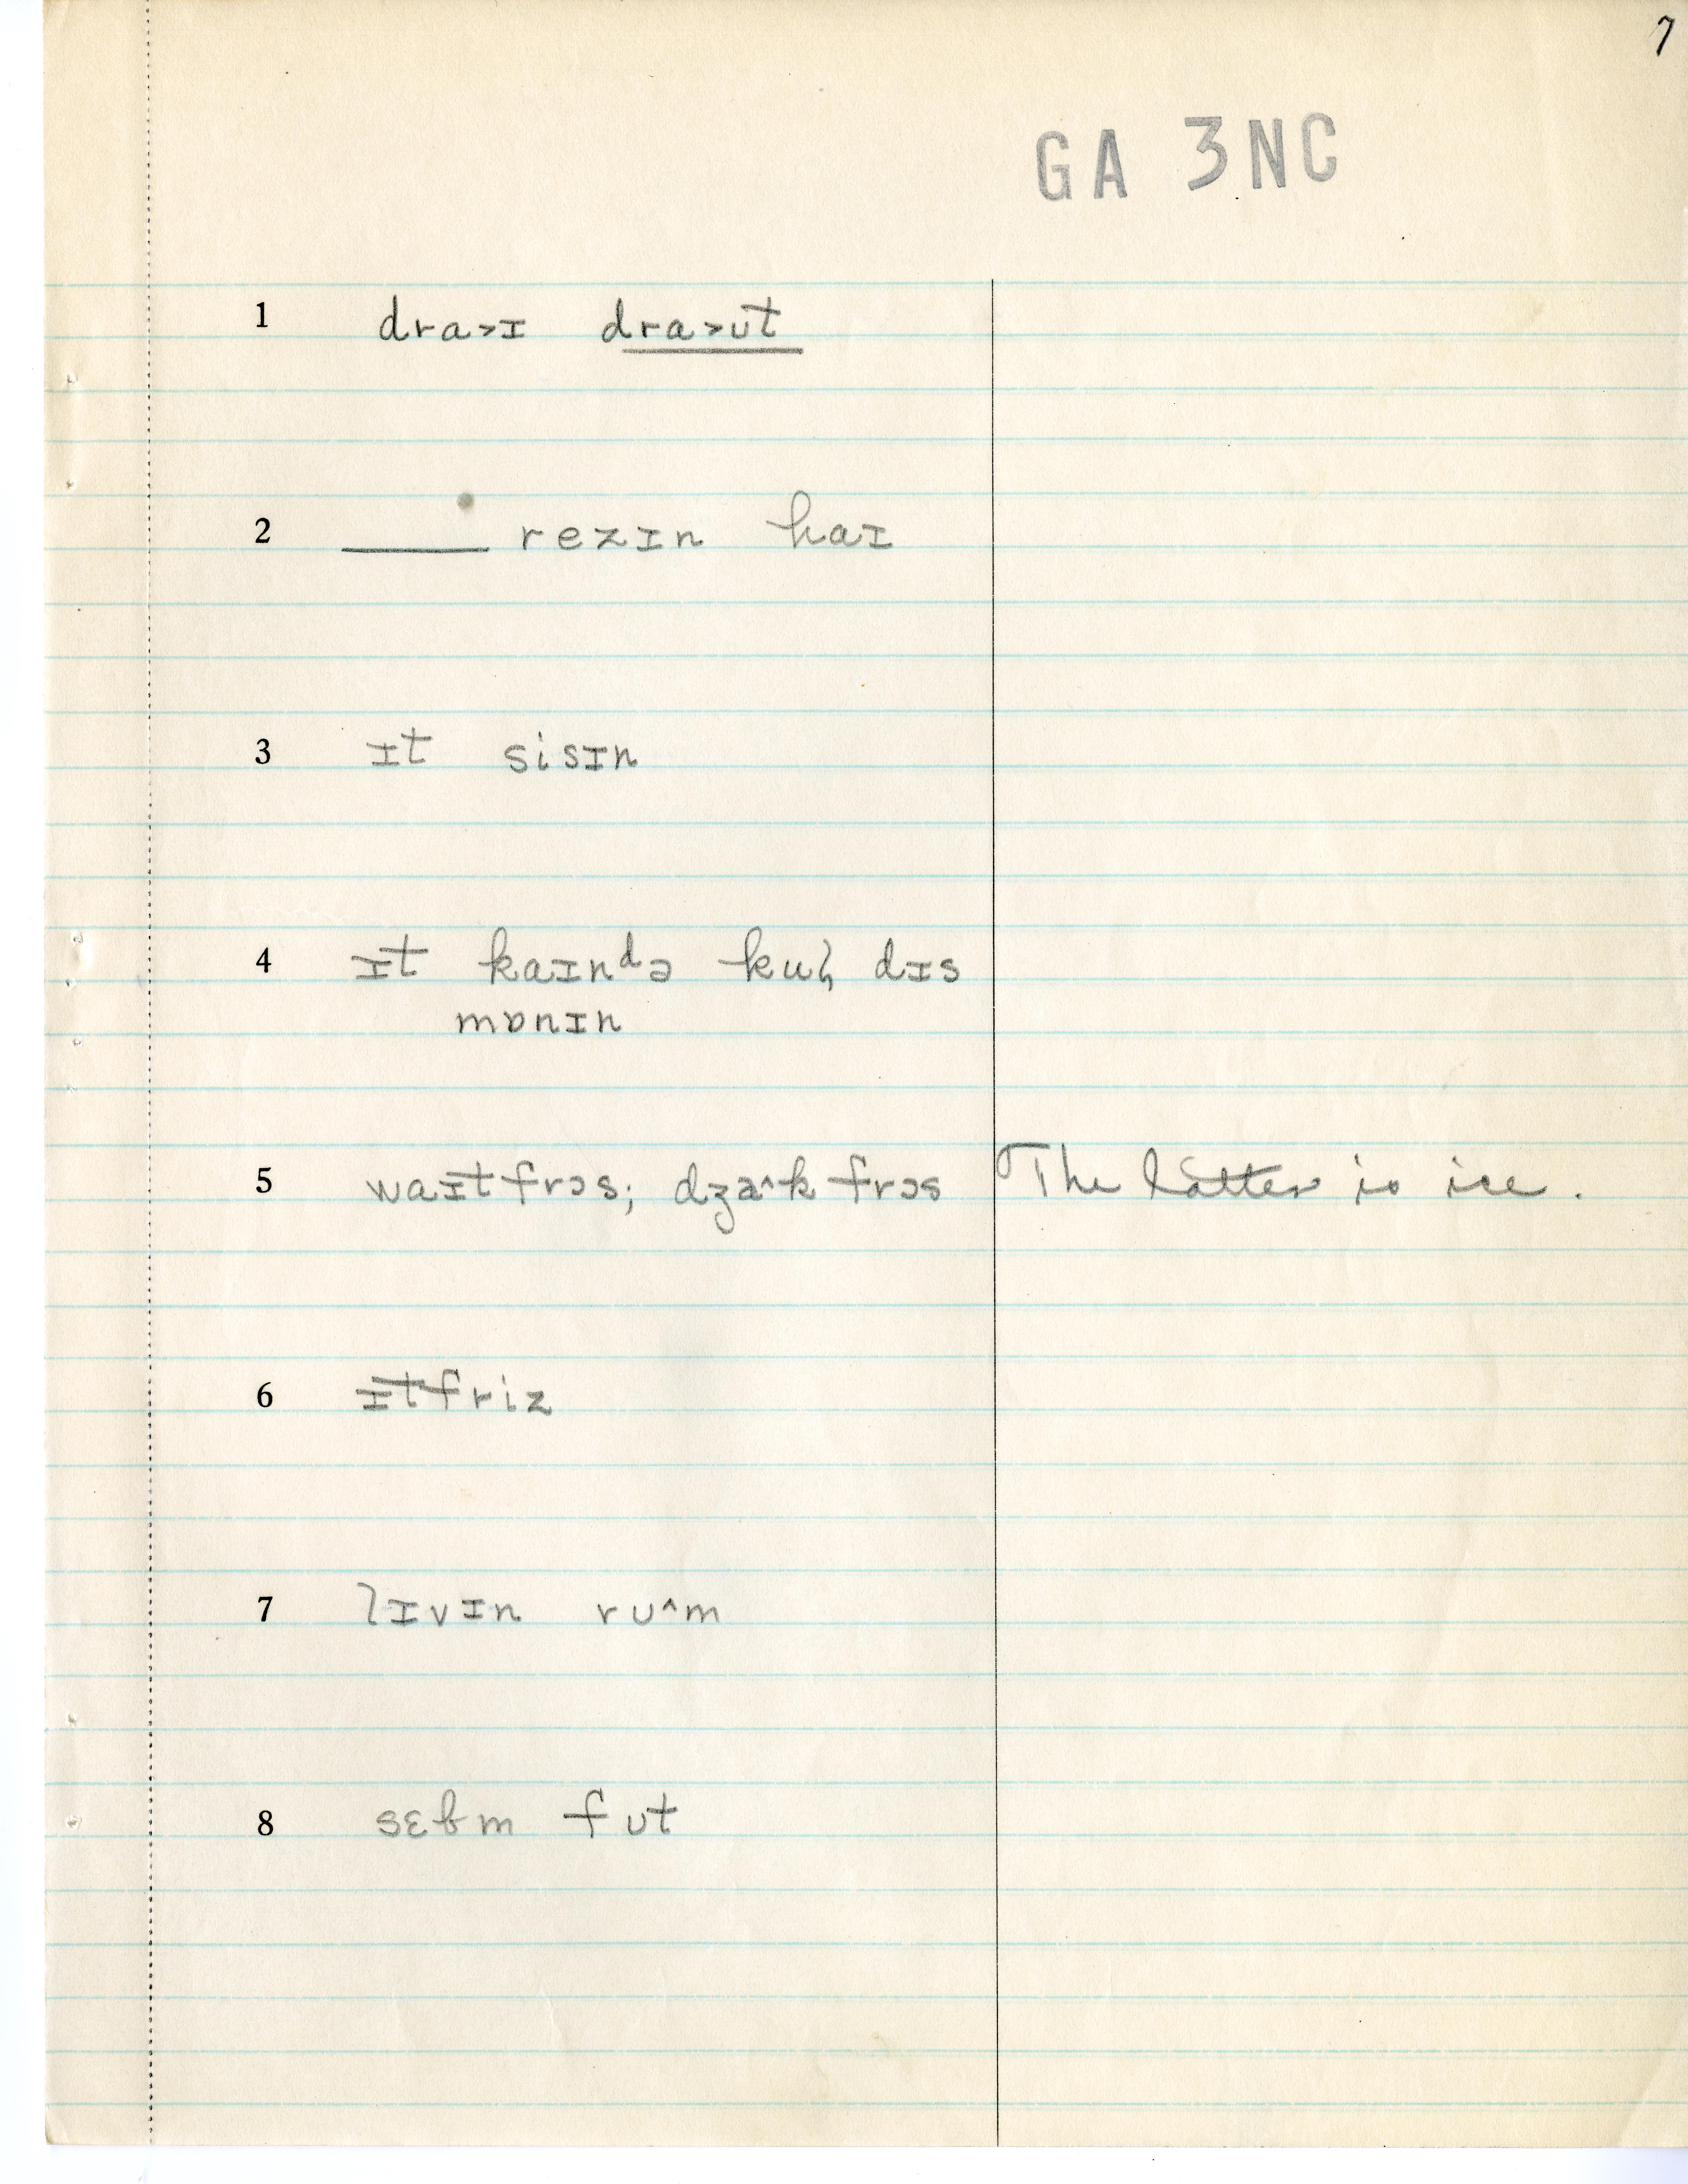 7
GA 3NC
1 dra>ɪ dra>ʊt
2 ____ rezɪn haɪ
3 ɪt sisɪn
4 ɪt kaɪnᵈə kuɫ dɪs
mɒnɪn
5 waɪtfrɔs; dʒa^kfrɔs The latter is ice.
6 ɪtfriz
7 lɪvɪn rʊ^m
8 sɛbm fʊt